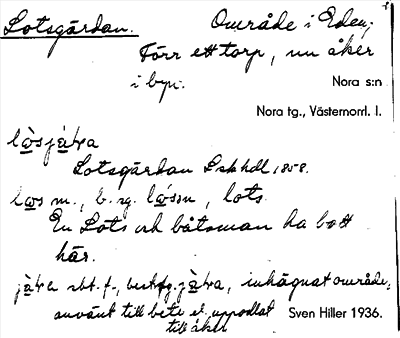 Lotsgärdan. Område i Eden;
Förr ett torp, nu åker
i byn.
Nora s:n
Nora tg., Västernorrl. l.
Lotsgärdan Lskhdl 1858.
m., b. sg. lots
En Lots och båtsman ha bott
här.
sbt. f., inhägnat område,
använt till bete el. uppodlat
till åker
Sven Hiller 1936.